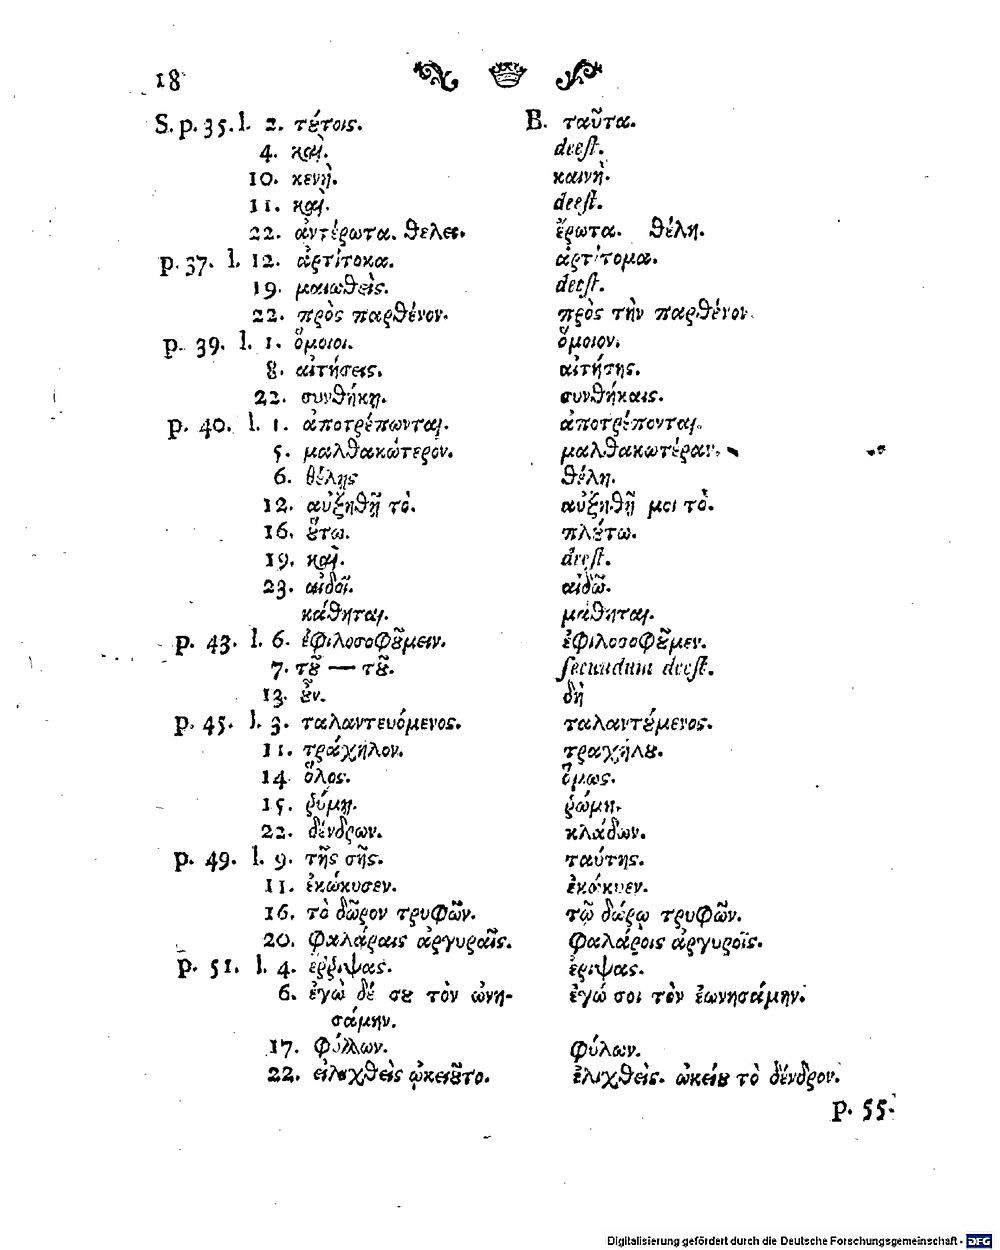 18
S. p. 35. l. 2. τȣ́τοις. B. ταῦτα.
4. καὶ. deest.
10. κενὴ. καινὴ.
11. καὶ. deest.
22. ἀντέρωτα. θελει. ἔρωτα. θέλη.
p. 37. l. 12. ἀρτίτοκα. ἀρτίτομα.
19. μαιωθεὶς. deest.
22. πρὸς παρθένον. πρὸς τὴν παρθένον.
p. 39. l. 1. ὅμοιοι. ὅμοιον.
8. αἰτήσεις. αἰτήτης.
22. συνθήκη. συνθήκαις.
p. 40. l. 1. ἀποτρέπωνται. ἀποτρέπονται.
5. μαλθακώτερον. μαλθακωτέραν.
6. θέλης θέλη.
12. αὐξηθῆ τὸ. αὐξηθῆ μοι τὸ.
16. ȣ̔́τω. πλȣ́τω.
19. καὶ. deest.
23. αἰδοῖ. αἰδῶ.
κάθηται. μάθηται.
p. 43. l. 6. ἐφιλοσοφȣ͂μειν. ἐφιλοσοφȣ͂μεν.
7. τȣ͂ — τȣ͂. secundum deest.
13. ȣ̓͂ν. δὴ
p. 45. l. 3. ταλαντευόμενος. ταλαντȣ́μενος.
11. τράχηλον. τραχήλȣ.
14 ὅλος. ὅμως.
15. ῥύμη. ῥώμη.
22. δένδρων. κλάδων.
p. 49. l. 9. τῆς σῆς. ταύτης.
11. ἐκώκυσεν. ἐκώκυεν.
16. τὸ δῶρον τρυφῶν. τῷ δώρῳ τρυφῶν.
20. φαλάραις ἀργυραῖς. φαλάροις ἀργυροῖς.
p. 51. l. 4. ἐῤῥιψας. ἐριψας.
6. ἐγὼ δέ σȣ τὸν ὠνη- ἐγώ σοι τὸν ἐωνησάμην.
σάμην.
17. φύλλων. φύλων.
22. εἰλιχθεὶς ᾠκειȣ͂το. ἐλιχθεὶς. ᾠκείȣ τὸ δένδρον.
p. 55.
Digitalisierung gefördert durch die Deutsche Forschungsgemeinschaft - DFG